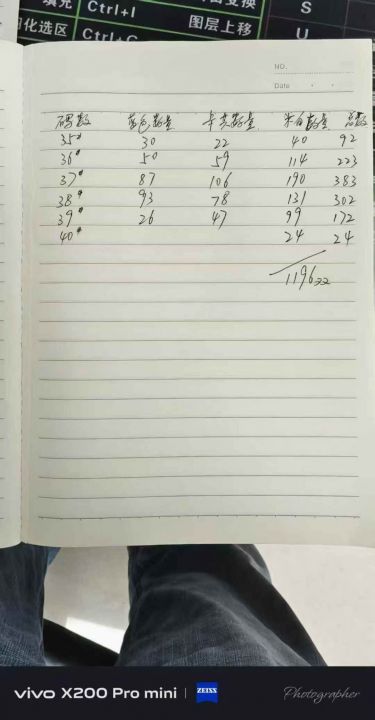 填充 Ctrl+I 变换 S
化选区 Ctrl+G 图层上移 U
NO.
Date
码数 蓝色数量 卡其数量 米白数量 总数
35# 30 22 40 92
36# 50 59 114 223
37# 87 106 190 383
38# 93 78 131 302
39# 26 47 99 172
40# 24 24
1196双
vivo X200 Pro mini | ZEISS Photographer